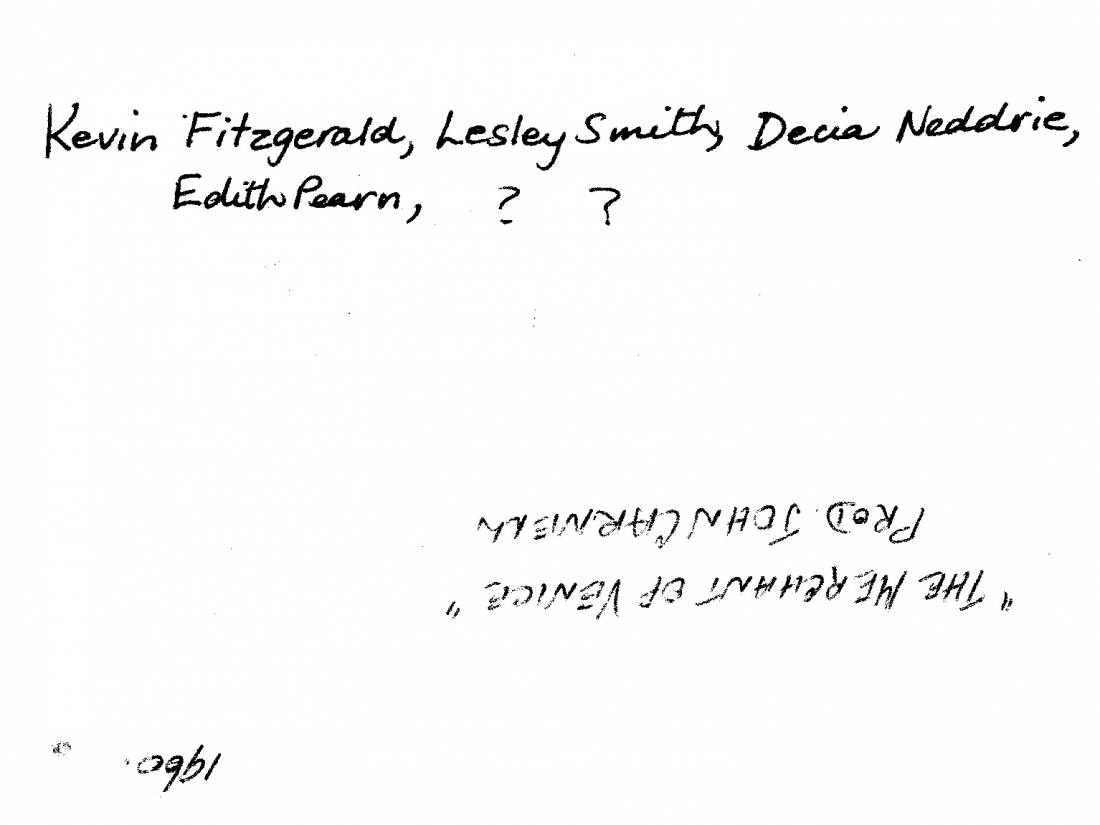 Kevin Fitzgerald, Lesley Smith, Decia Neddrie,
Edith Pearn, ? ?
1960.
"THE MERCHANT OF VENICE"
PROD. JOHN